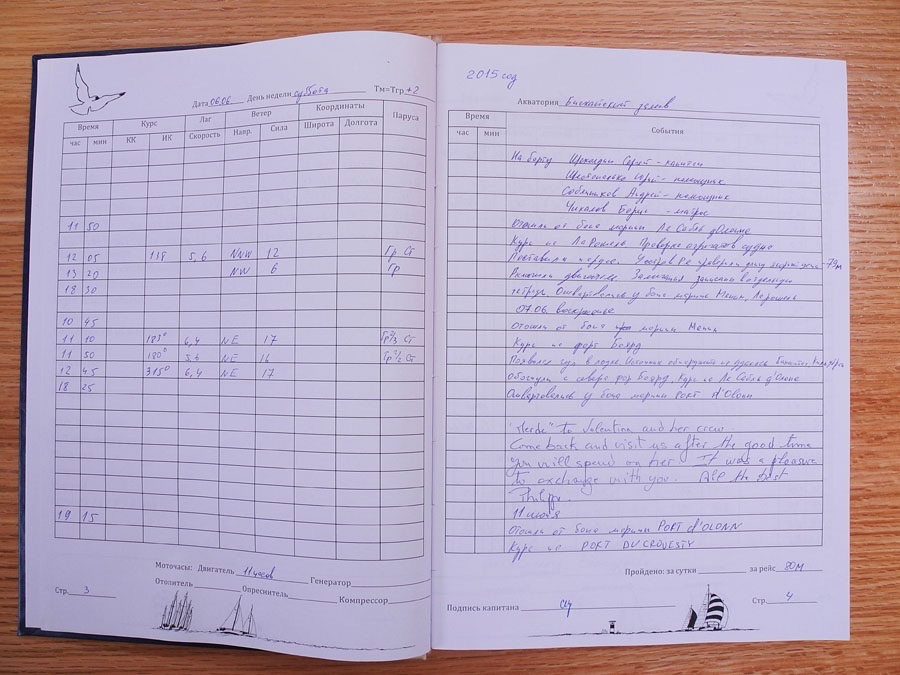 Дата 06.06 День недели суббота Тм=Тгр +2
Время Курс Лаг Ветер Координаты Паруса
час мин КК ИК Скорость Напр. Сила Широта Долгота
11 50
12 05 118 5,6 NNW 12 Гр Ст
13 20 NW 6 Гр
18 30
10 45
11 10 183° 6,4 NE 17 Гр Ст
11 50 180° 5,4 NE 16 Гр 1/2 Ст
12 45 315° 6,4 NE 17
18 25
19 15
Моточасы: Двигатель 11 часов Генератор
Отопитель Опреснитель Компрессор
Стр. 3
2015 год
Акватория Бискайский залив
Время События
час мин
На борту Сергей - капитан
Юрий - помощник
Андрей - помощник
Чикалов Борис - матрос
Отошли от бона марины Ле Сабль д'Олонне
Курс на Ла Рошель Проверка агрегатов судна
Поставили паруса.
Включили двигатель. Замечания записаны в отдельную
тетрадь Ошвартовались у бона марины Меним, Ла Рошель
07.06. воскресенье
Отошли от бона марины Меним
Курс на форт Боярд
Появилась вода в лодке.
Обогнули с севера фор Боярд. Курс на Ле Сабль d'Олона
Ошвартовались у бона марины PORT d'OLONN
"Merde" to Valentina and her crew.
Come back and visit us after the good time
you will spend on her It was a pleasure
to exchange with you. All the best
Philippe.
11 июня
Отошли от бона марины PORT d'OLONN
Курс на PORT DU CROUESTY
Пройдено: за сутки за рейс 80м
Подпись капитана Стр. 4